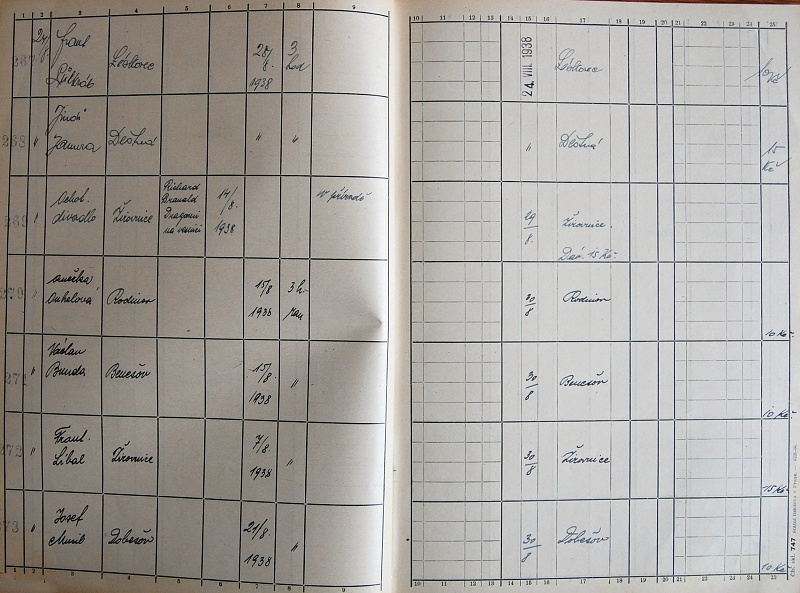 1 2 3 4 5 6 7 8 9
10 11 12 13 14 15 16 17 18 19 20 21 22 23 24 25
267 Frant. Léskovec 28/8. 1938 3 24. VIII. 1938 Léskovec
268 " Jindř. Jamura Deštná " " " Deštná 15 Kč
269 " Ochot. divadlo Žirovnice Richard Dragouni na vesnici 14/8. 1938 v přírodě 29/8. Žirovnice.
Dáv. 15 Kč
270 " Anežka Rodinov 15/8 1938 3 h. 30/8 Rodinov 10 Kč
271 " Václav Bunda Benešov 15/8. 1938 " 30/8 Benešov 10 Kč
272 " Frant. Líbal Žirovnice 7/8. 1938 " 30/8 Žirovnice 15 Kč
273 " Josef Musil Dobešov 21/8. 1938 " 30/8 Dobešov 10 Kč
1 2 3 4 5 6 7 8 9
10 11 12 13 14 15 16 17 18 19 20 21 22 23 24 25
747